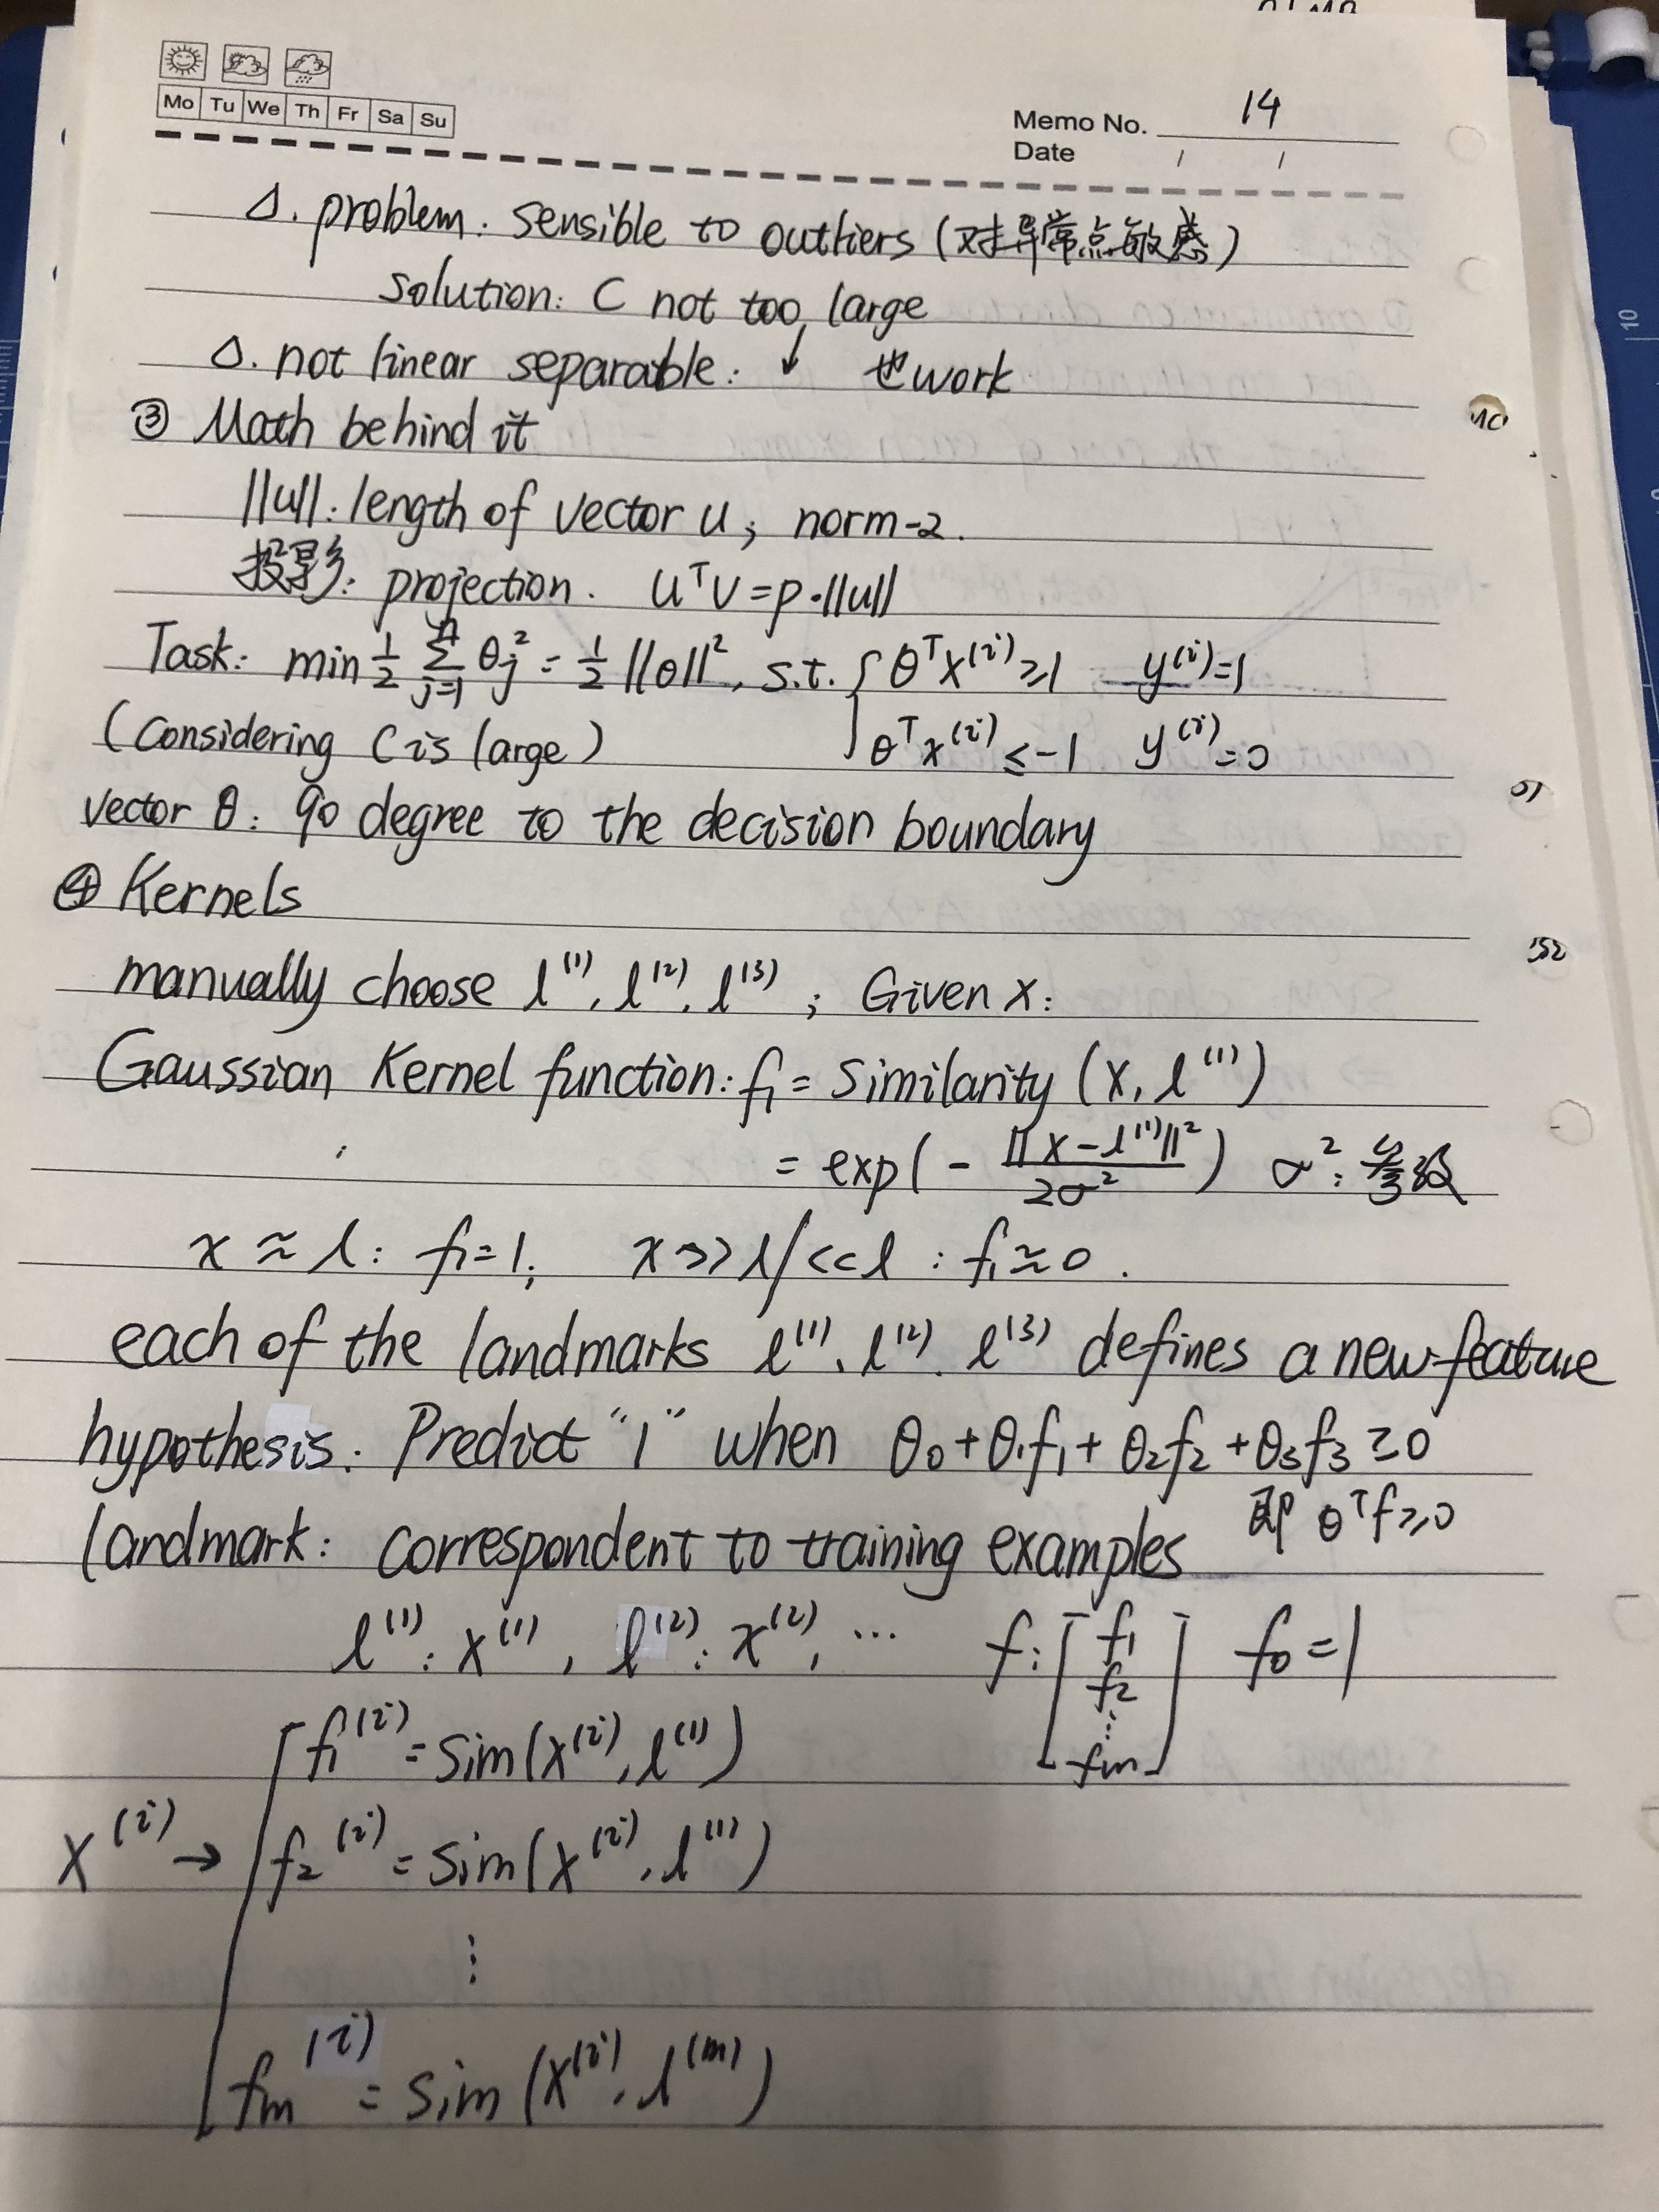 Mo Tu We Th Fr Sa Su
Memo No. 14
Date / /
Δ. problem: sensible to outliers (对异常点敏感)
solution: C not too large
Δ. not linear separable: ↓ 也work
③ Math behind it
||u||: length of vector u; norm-2.
投影: projection. uᵀv = p·||u||
Task: min 1/2 Σ_{j=1}^{n} θj² = 1/2 ||θ||², s.t. { θᵀx⁽ⁱ⁾ ≥ 1 y⁽ⁱ⁾=1
(Considering C is large) θᵀx⁽ⁱ⁾ ≤ -1 y⁽ⁱ⁾=0
vector θ: 90 degree to the decision boundary
④ Kernels
manually choose l⁽¹⁾, l⁽²⁾, l⁽³⁾; Given x:
Gaussian Kernel function: f₁ = Similarity (x, l⁽¹⁾)
= exp(- ||x-l⁽¹⁾||² / 2σ²) σ²: 参数
x ≈ l: f₁=1; x>>l/<<l: f₁≈0.
each of the landmarks l⁽¹⁾, l⁽²⁾, l⁽³⁾ defines a new feature
hypothesis: Predict "1" when θ₀+θ₁f₁+θ₂f₂+θ₃f₃ ≥0
即 θᵀf≥0
landmark: correspondent to training examples
l⁽¹⁾: x⁽¹⁾, l⁽²⁾: x⁽²⁾, ... f: [f₁ f₂ ⋮ fm] f₀=1
f₁⁽ⁱ⁾ = sim(x⁽ⁱ⁾, l⁽¹⁾)
x⁽ⁱ⁾ → f₂⁽ⁱ⁾ = sim(x⁽ⁱ⁾, l⁽¹⁾)
⋮
fm⁽ⁱ⁾ = sim(x⁽ⁱ⁾, l⁽ᵐ⁾)
10